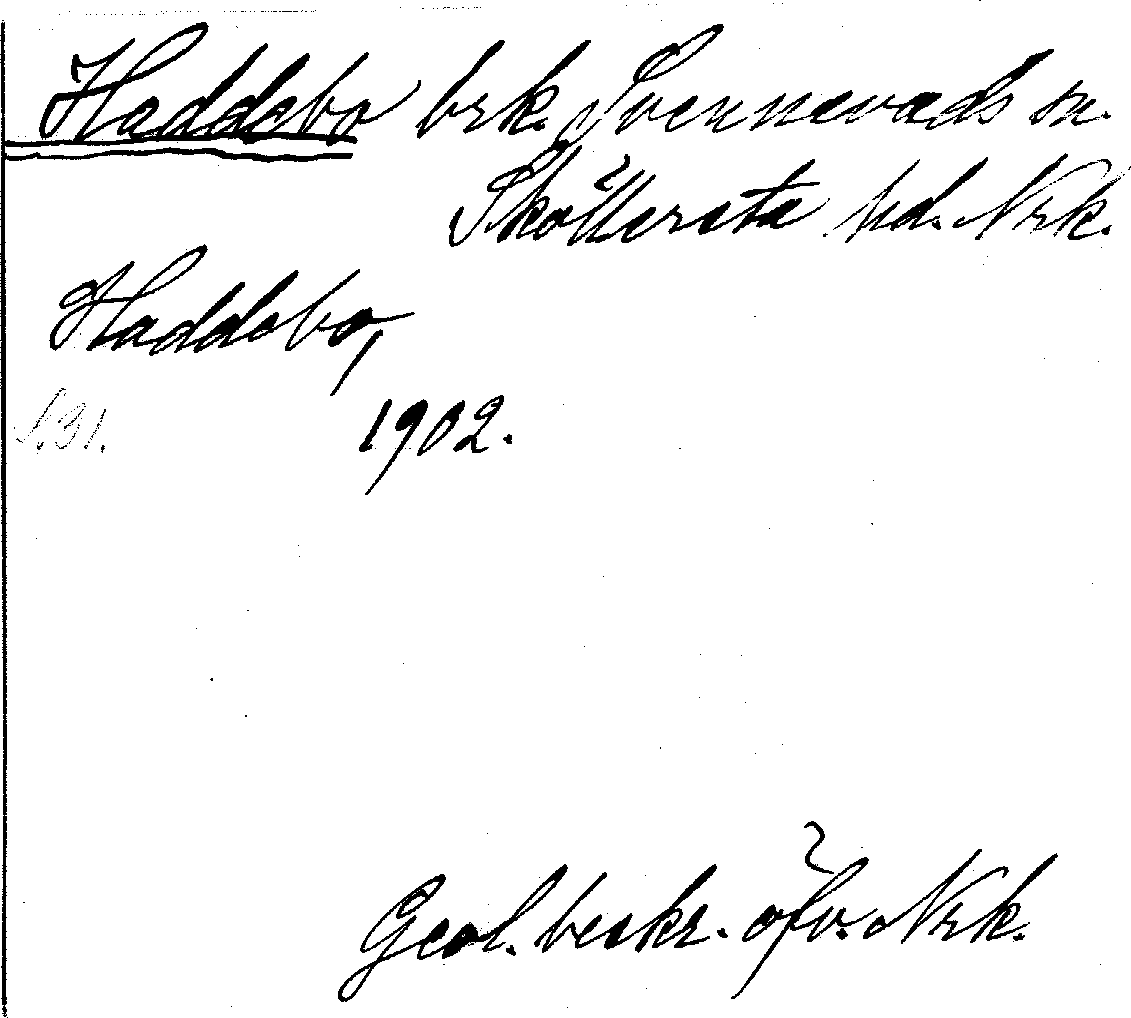 Haddebo brk. Svennevads sn.
Sköllersta hd. Nrk.
Haddebo,
S. 31. 1902.
Geol. beskr. öfv. Nrk.